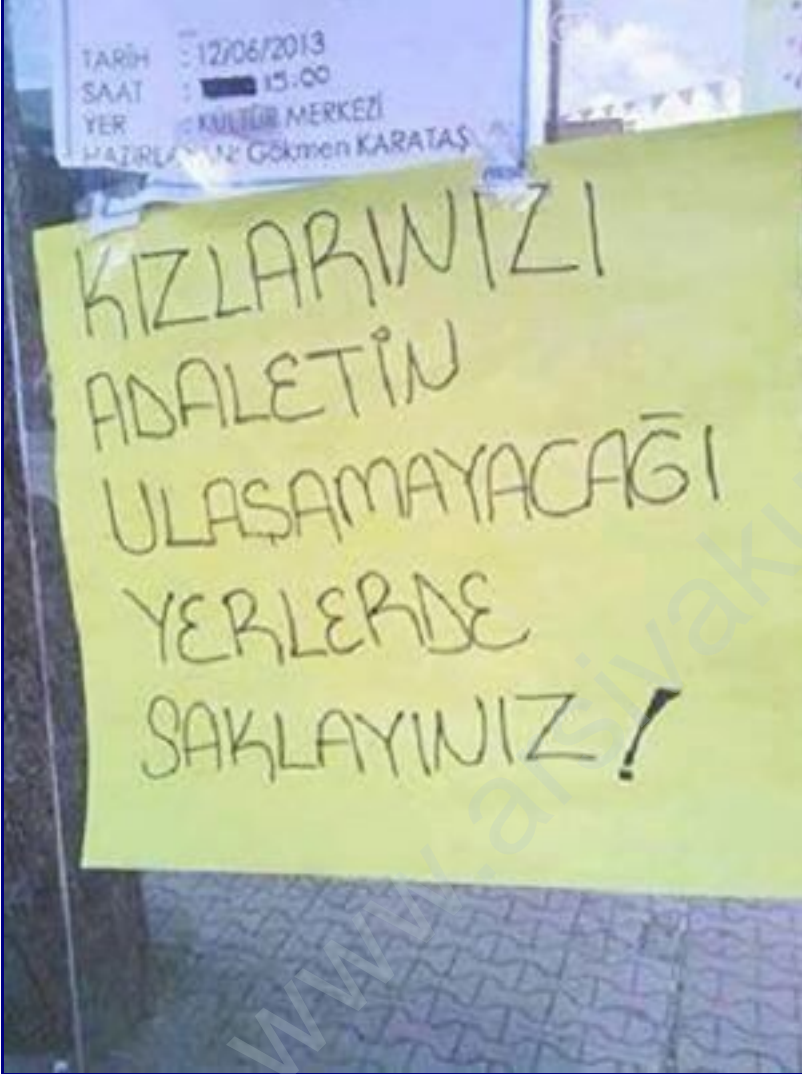 TARİH : 12/06/2013
SAAT : 15.00
YER : KÜLTÜR MERKEZİ
HAZIRLAYAN: Gökmen KARATAŞ
KIZLARINIZI
ADALETİN
ULAŞAMAYACAĞI
YERLERDE
SAKLAYINIZ!
www.arsivaku